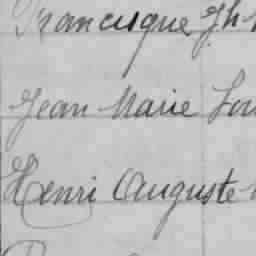 Francisque
Jean Marie
Henri Auguste